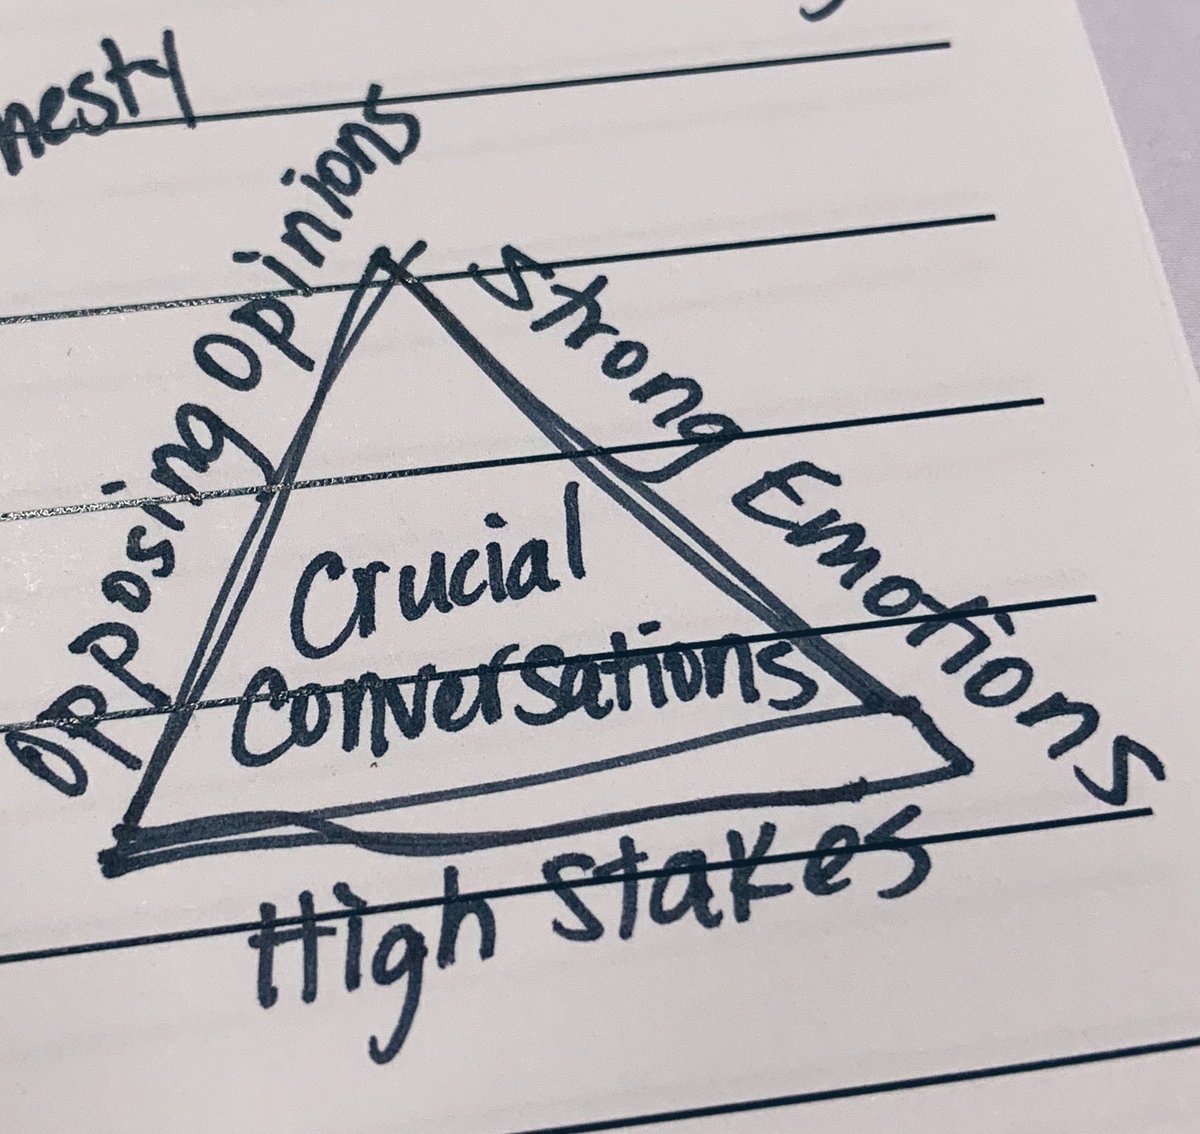 nesty
Opposing Opinions
Strong Emotions
Crucial
Conversations
High Stakes